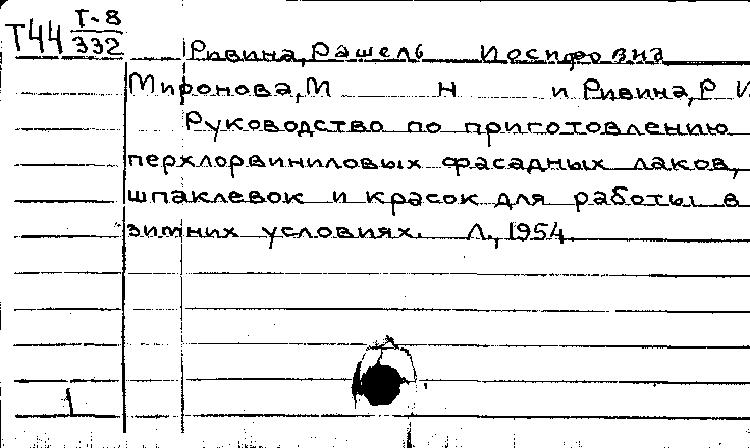 Т44 Т-8
332
Ривина, Рашель Иосифовна
Миронова, М Н и Ривина, Р И
Руководство по приготовлению
перхлорвиниловых фасадных лаков,
шпаклевок и красок для работы в
зимних условиях. Л., 1954.
1